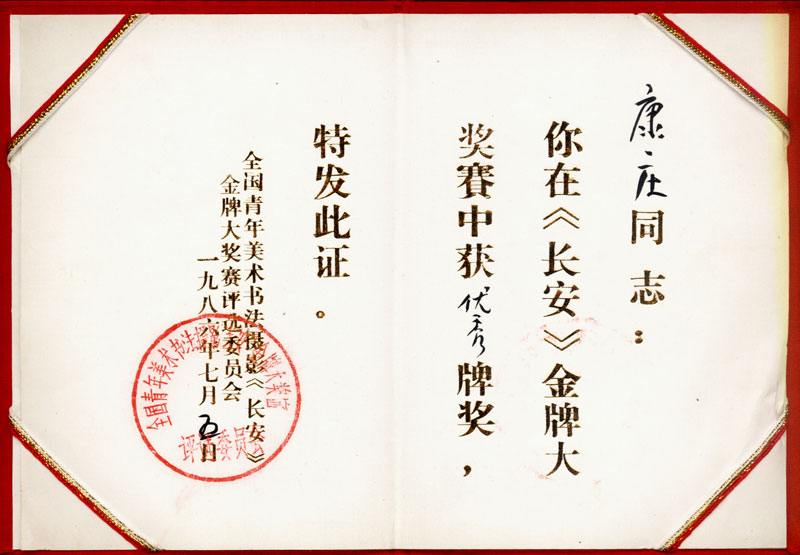 康庄同志：
你在《长安》金牌大
奖赛中获优秀牌奖，
特发此证。
全国青年美术书法摄影《长安》
金牌大奖赛评选委员会
一九八六年七月五日
评选委员会